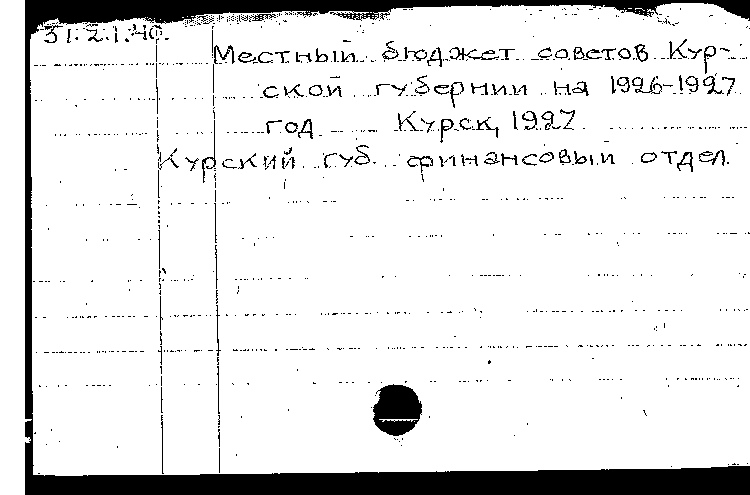 31.2.1.40.
Местный бюджет советов Кур-
ской губернии на 1926-1927
год Курск, 1927
Курский губ. финансовый отдел.